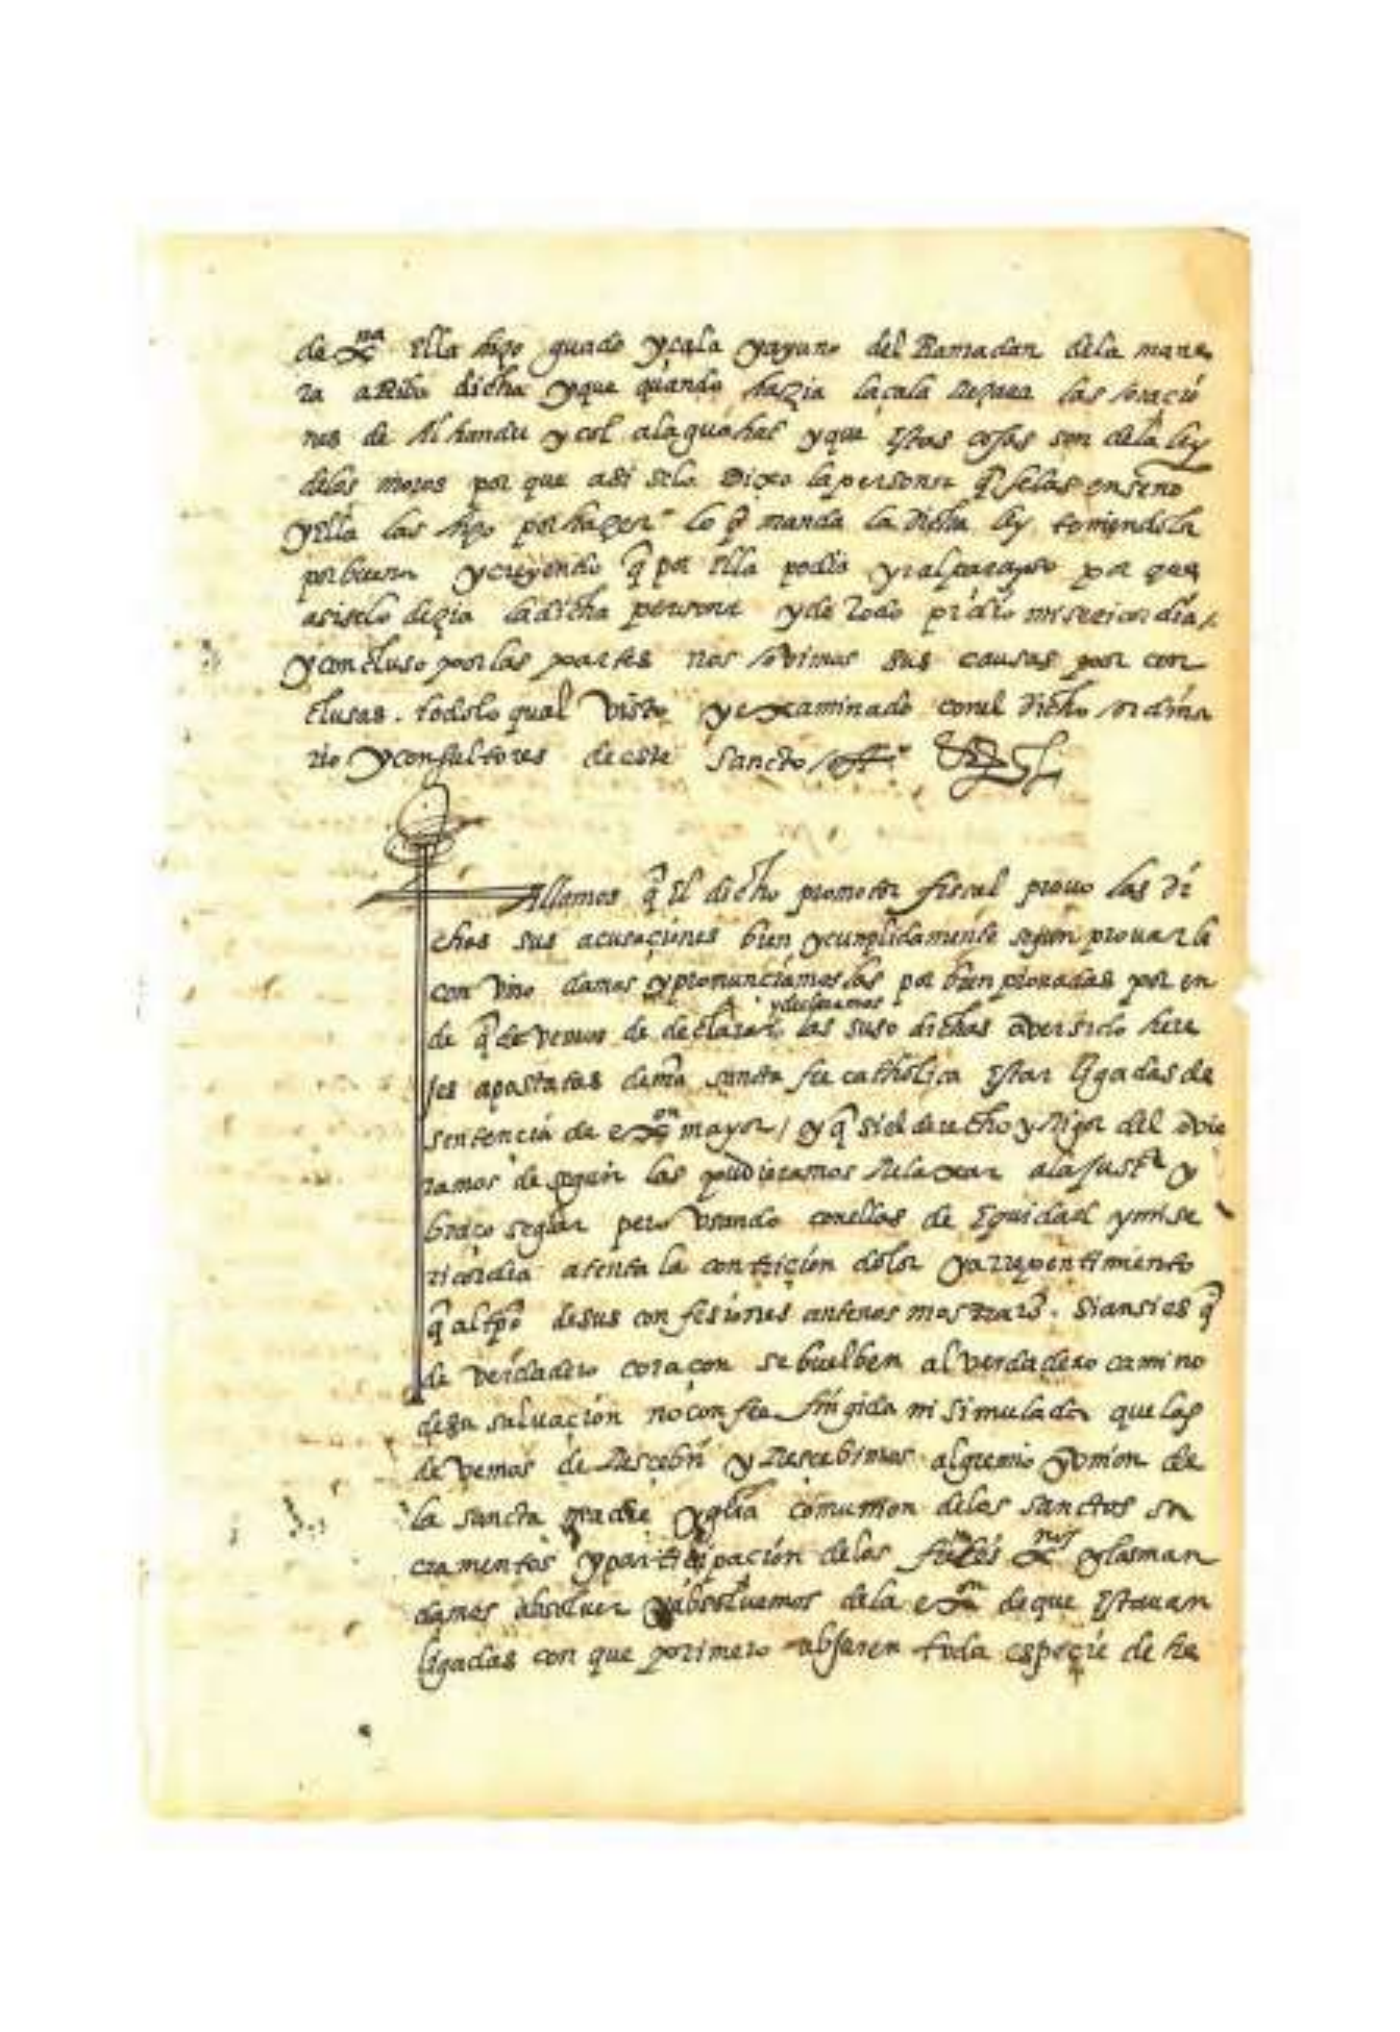 de xpna ella hizo guado y çala y ayuno del Ramadan dela mane
ra aRiba dicha y que quando hazia la çala Rezaua las oracio
nes de Alhandu y col alaguahat y que estas cosas son dela ley
delos moros por que asi selo Dixo la persona q̃ selas enseño
y ella las hizo por hazer lo q̃ manda la dicha ley teniendola
por buena y creyendo q̃ por ella podia yr al parayso por que
asi selo dezia la dicha persona y de todo pidio misericordia /
y concluso por las partes nos ovimos sus causas por con
clusas . todo lo qual visto y examinado con el dicho ordina
rio y consultores de este sancto offº
Fallamos q̃ el dicho promotor fiscal prouo las di
chas sus acusaciones bien y cumplidamente segun prouar le
conuino damos y pronunciamos las por bien prouadas por en
de q̃ deuemos de declarar y declaramos las suso dichas aver sido here
jes apostatas de nrã sancta fee catholica estar ligadas de
sentencia de exon mayor / y q̃ si el derecho y Rigor del ovie
ramos de seguir las pudieramos Relaxar ala justª y
braço seglar pero vsando con ellas de equidad y mise
ricordia atenta la contriçion dolor y arrepentimiento
q̃ al tpõ de sus confesiones ante nos mostrarõ . si ansi es q̃
de verdadero coraçon se buelben al verdadero camino
de su saluacion no con fee fingida ni simulada que las
devemos de Rescebir y Rescebimos al gremio y vnion de
la sancta madre yglia comunion delos sanctos sa
cramentos y participacion delos fieles xpnos y las man
damos absoluer y absoluemos dela exon de que estauan
ligadas con que primero abjuren toda especie de he